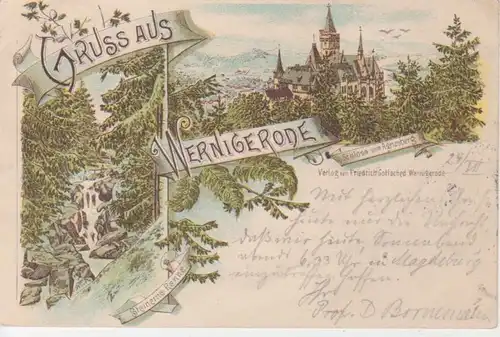 GRUSS AUS
WERNIGERODE
Schloss vom Agnesberg
Verlag von Friedrich Gottsched Wernigerode
Steinerne Renne
24/VII
Mit herzlichen
heute nur die
daß wir heute Sonnabend
abend 6,33 Uhr in Magdeburg
einzutreffen hoffen.
Ihr
Prof. D Bornemann